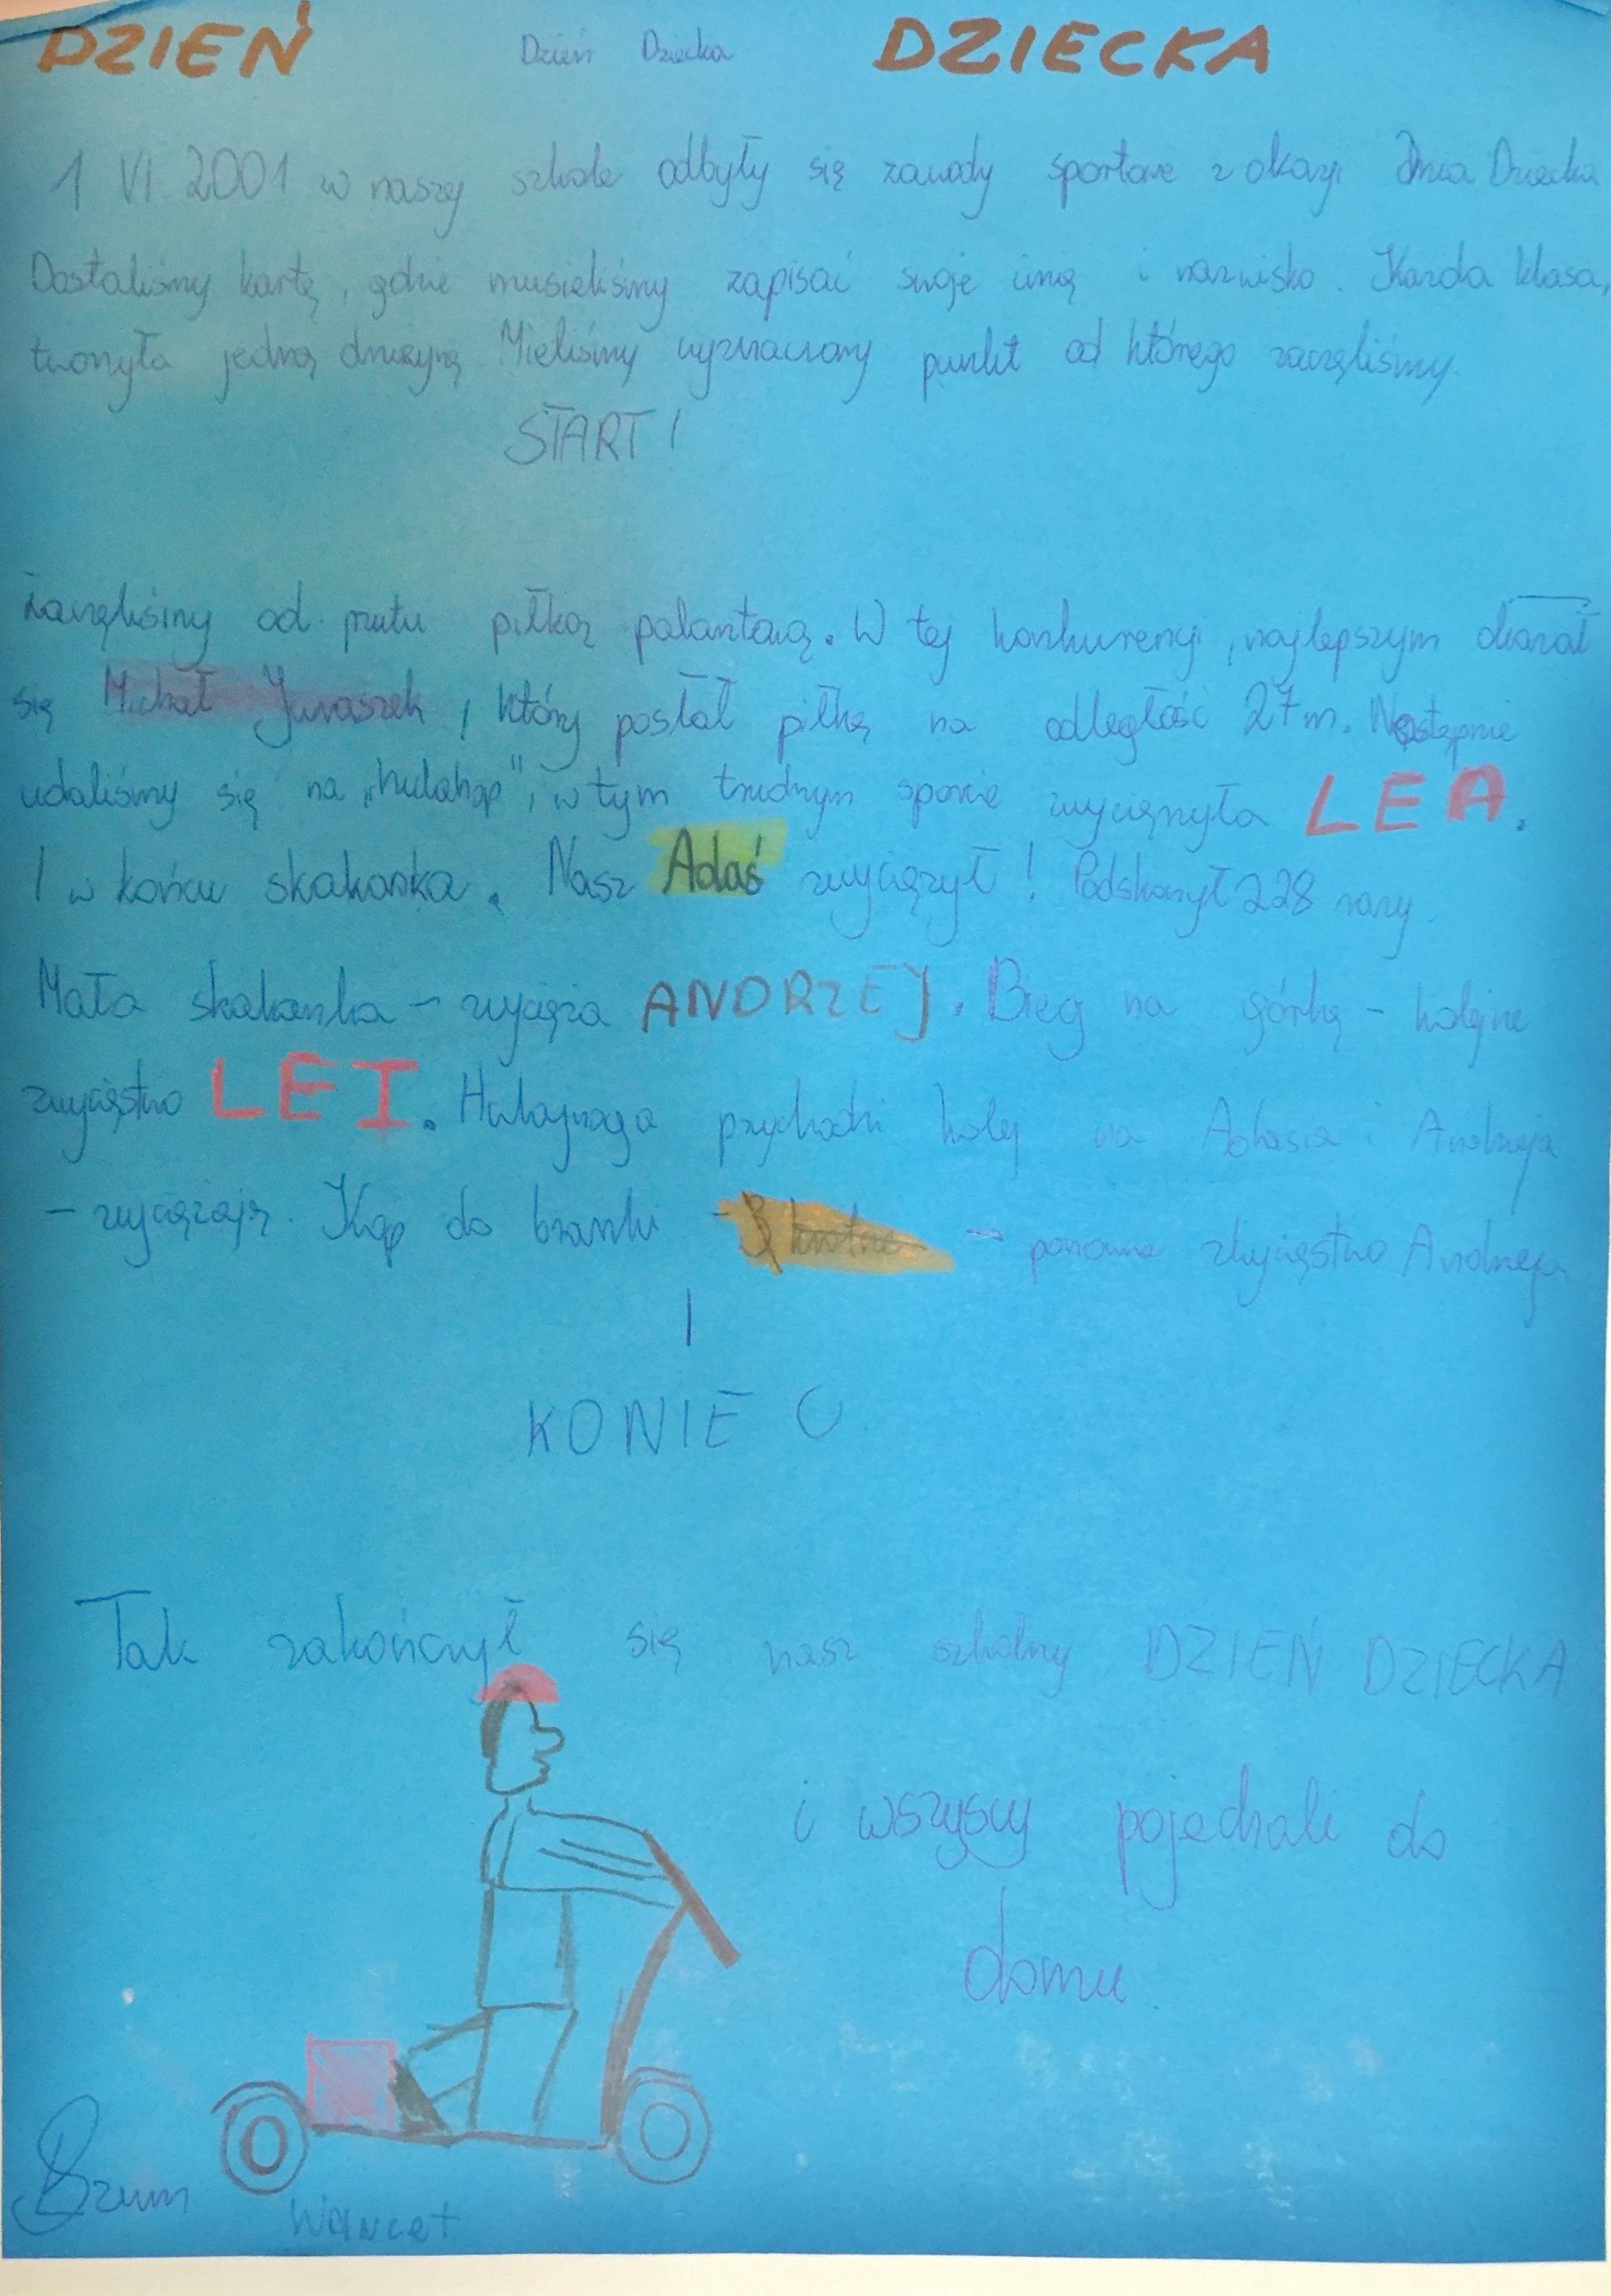 DZIEŃ Dzień Dziecka DZIECKA
1 VI 2001 w naszej szkole odbyły się zawody sportowe z okazji Dnia Dziecka
Dostaliśmy kartę, gdzie musieliśmy zapisać swoje imię i nazwisko. Każda klasa,
tworzyła jedną drużynę. Mieliśmy wyznaczony punkt od którego zaczęliśmy.
START!
Zaczęliśmy od rzutu piłką palantową. W tej konkurencji, najlepszym okazał
się Michał Juraszek, który posłał piłkę na odległość 27 m. Następnie
udaliśmy się na „hulahop", w tym trudnym sporcie zwyciężyła LEA.
I w końcu skakanka. Nasz Adaś zwyciężył! Podskoczył 228 razy.
Mała skakanka - zwycięża ANDRZEJ. Bieg na górkę - kolejne
zwycięstwo LEI. Hulajnoga przychodzi kolej na Adasia i Andrzeja
- zwyciężają. Kop do bramki - - ponowne zwycięstwo Andrzeja
I
KONIEC
Tak zakończył się nasz szkolny DZIEŃ DZIECKA
i wszyscy pojechali do
domu.